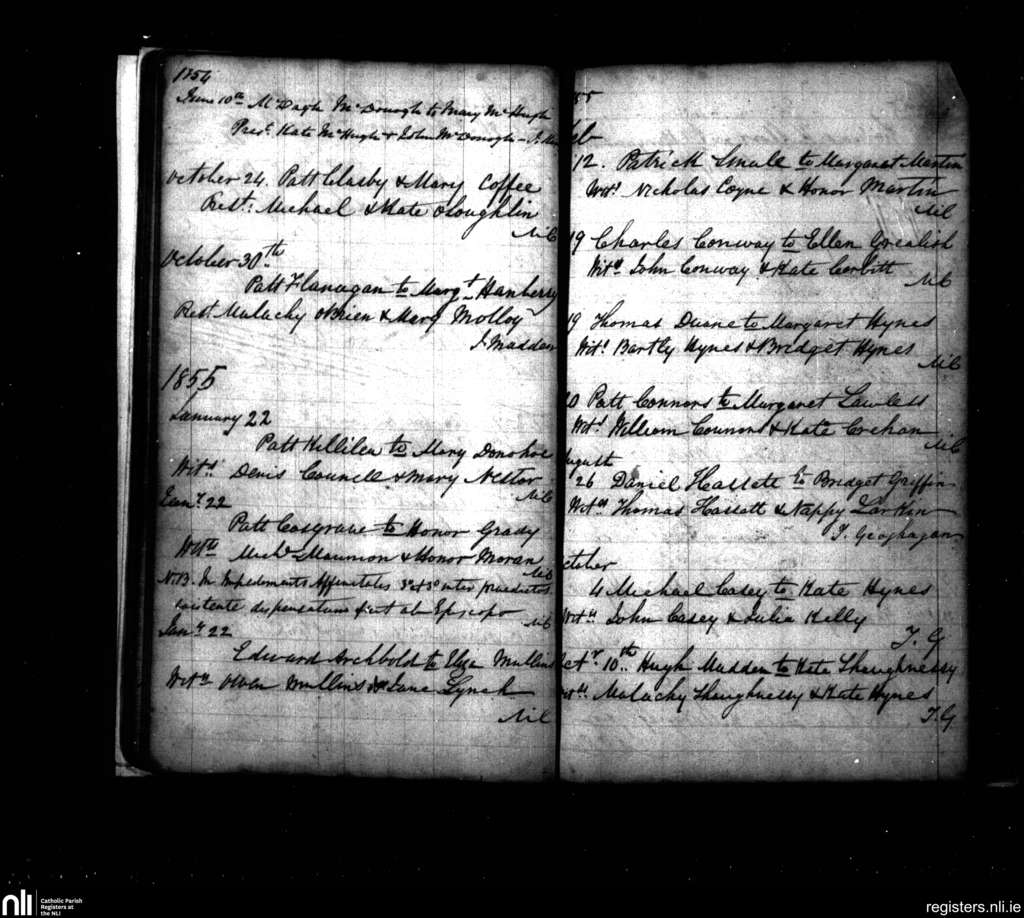 1854
June 10th McDonogh to Mary McHugh
Prest. Kate McHugh & John McDonogh
October 24. Patt Clasby & Mary Coffee
Prest: Michael & Kate oLoughlin
October 30th
Patt Flanagan to Margt Hanberry
Prest Malachy oBrien & Mary Molloy
J. Madden
1855
January 22
Patt Killilea to Mary Donohoe
Wits Denis Councle & Mary Nestor
Jany. 22
Patt Cosgrave to Honor Grady
Witts Michl. Mannion & Honor Moran
N.B. In Impedimentis Affinitatis 3o et 3o inter praedictos
existente dispensatum fuit ab Episcopo
Jany 22
Edward Archbold to Eliza Mullins
Wits Owen Mullins & Jane Lynch
55
eb
12. Patrick Smale to Margaret Martin
Wits. Nicholas Coyne & Honor Martin
19 Charles Conway to Ellen Grealish
Wits John Conway & Kate Corbitt
19 Thomas Duane to Margaret Hynes
Wits Bartly Hynes & Bridget Hynes
0 Patt Connors to Margaret Lawless
Wits William Connors & Kate Crehan
August
26 Daniel Hassett to Bridget Griffin
Wits Thomas Hassett & Nappy Larkin
T. Geoghagan
ctober
4 Michael Casey to Kate Hynes
Wits John Casey & Julia Kelly
T. G
Octr. 10th Hugh Madden to Kate Shaughnessy
Wits Malachy Shaughnessy & Kate Hynes
T. G
nli Catholic Parish
Registers at
the NLI
registers.nli.ie